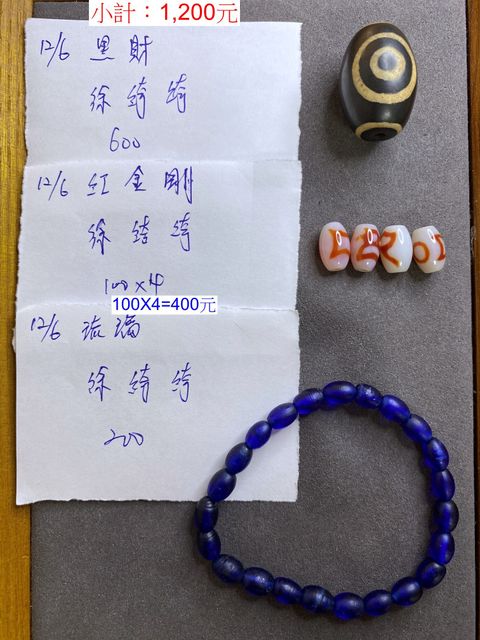 小計：1,200元
12/6 黑財
徐綺綺
600
12/6 紅金剛
徐綺綺
100×4
100X4=400元
12/6 琉璃
徐綺綺
200